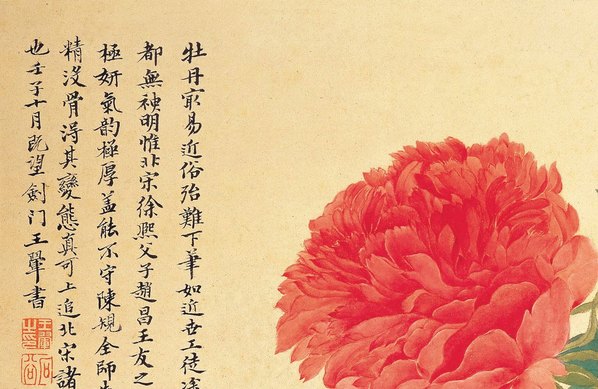 牡丹冣易近俗殆難下筆如近世工徒
都無神明惟北宋徐熙父子趙昌王友之
極妍氣韵極厚盖能不守陳規全師
精沒骨得其變態真可上追北宋諸
也壬子十月既望劍门王翬書